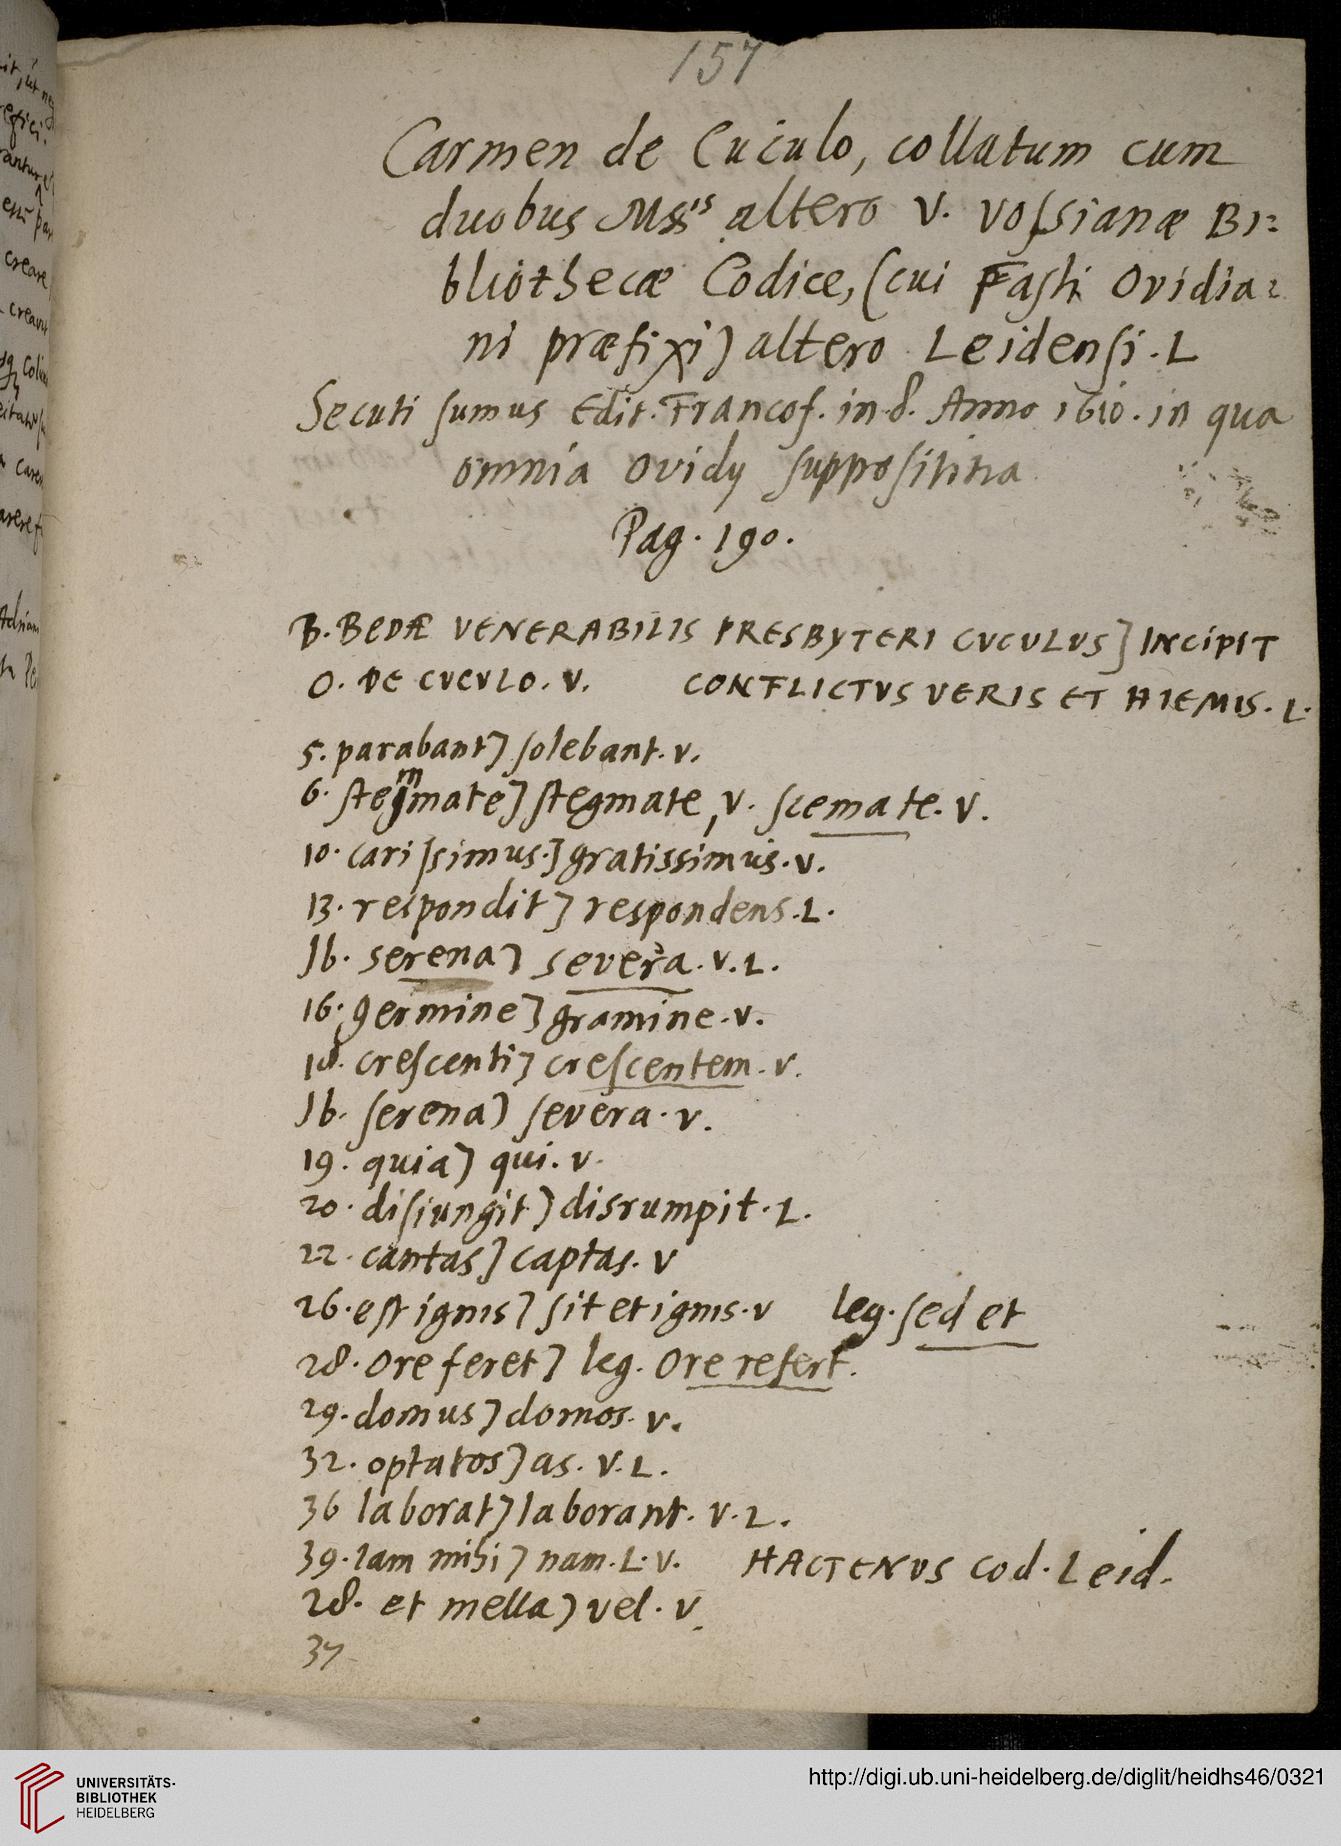 157
Carmen de Cuculo, collatum cum
duobus Mss^is altero V. Vossianæ Bi=
bliothecæ Codice, (cui Fasti Ovidia=
ni præfixi) altero Leidensi. L
Secuti sumus Edit. Francof. in 8. Anno 1610. in qua
omnia Ovidij supposititia
Pag. 190.
B. BEDÆ VENERABILIS PRESBYTERI CVCULVS] INCIPIT
O. DE CVCVLO. V. CONFLICTVS VERIS ET HIEMIS. L.
5. parabant] solebant. V.
6. stemmate] stegmate, V. scemate. V.
10. carissimus.] gratissimus. V.
13. respondit] respondens. L.
16. serena] severa. V. L.
16. germine] gramine. V.
18. crescenti] crescentem. V.
16. serena] severa. V.
19. quia] qui. V.
20. disiungit] disrumpit. L.
22. cantas] captas. V
26. est ignis] sit et ignis. V leg. sed et
28. Ore feret] leg. Ore refert.
29. domus] domos. V.
32. optatos] as. V. L.
36 laborat] laborant. V. L.
39. Iam mihi] nam. L. V. HACTENVS Cod. Leid.
28. et mella] vel. V.
37
UNIVERSITÄTS-
BIBLIOTHEK
HEIDELBERG
http://digi.ub.uni-heidelberg.de/diglit/heidhs46/0321